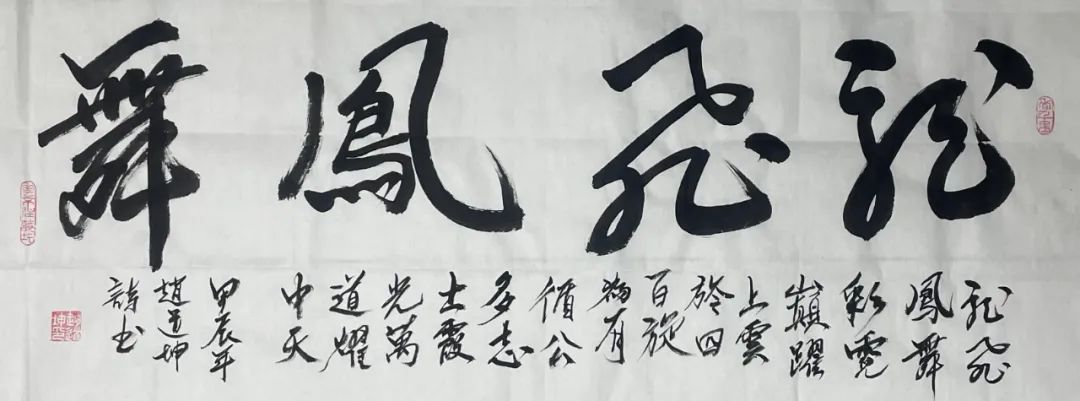 龍飛鳳舞
龍飛
鳳舞
彩霓
巔躍
上雲
四
百旋
為有
循公
多志
士霞
光萬
道耀
中天
甲辰年
趙道坤
詩書